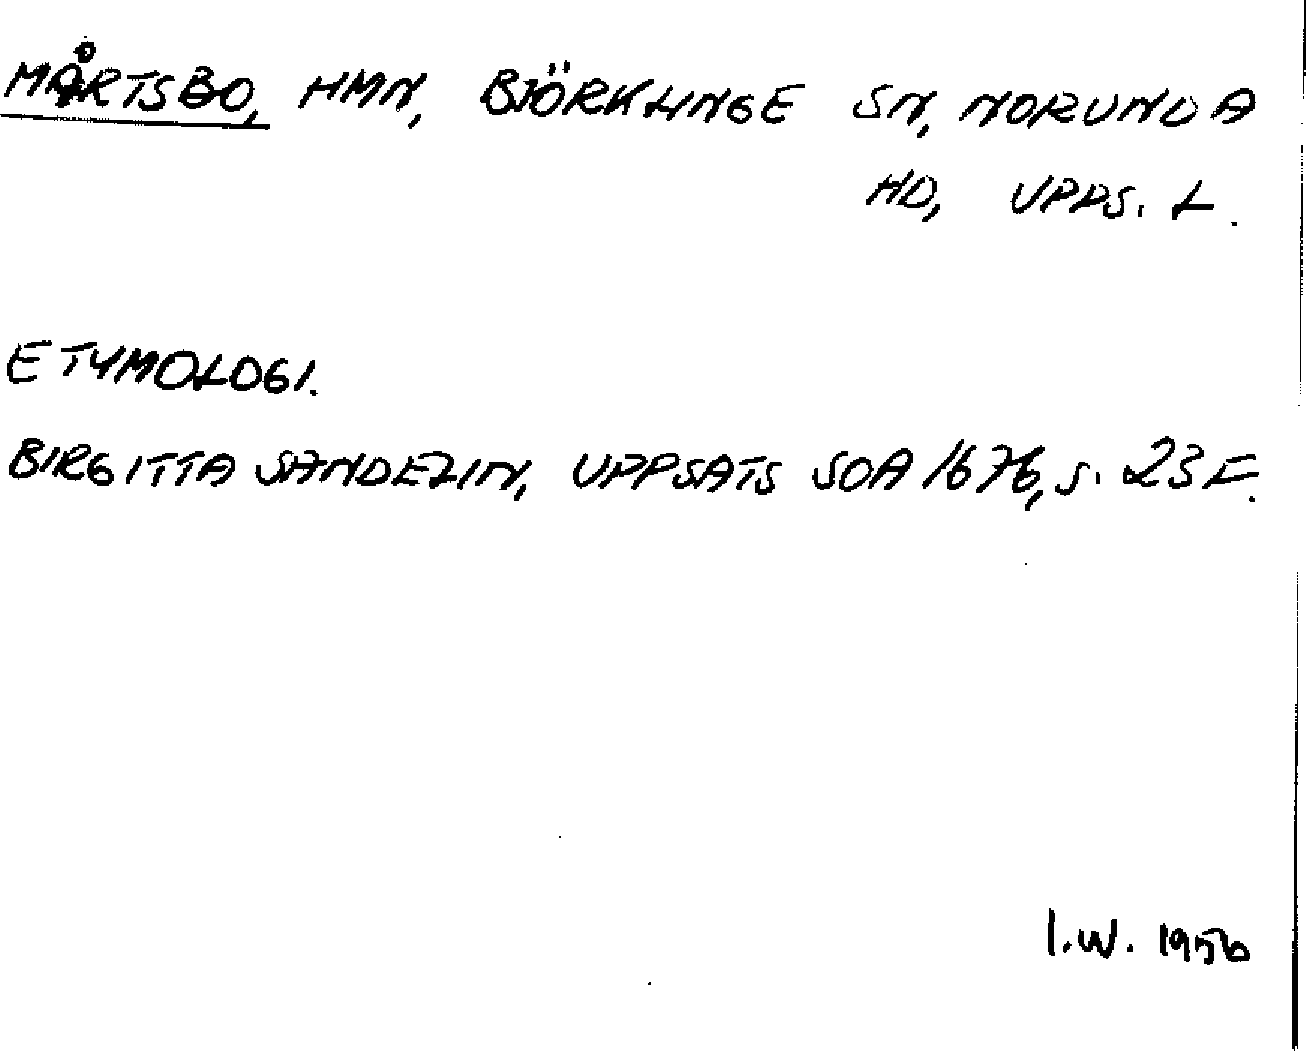 MÅRTSBO, HMN, BJÖRKLINGE SN, NORUNDA
HD, UPPS. L.
ETYMOLOGI.
BIRGITTA SANDELIN, UPPSATS SOA 1676, S. 23 F.
I.W. 1956